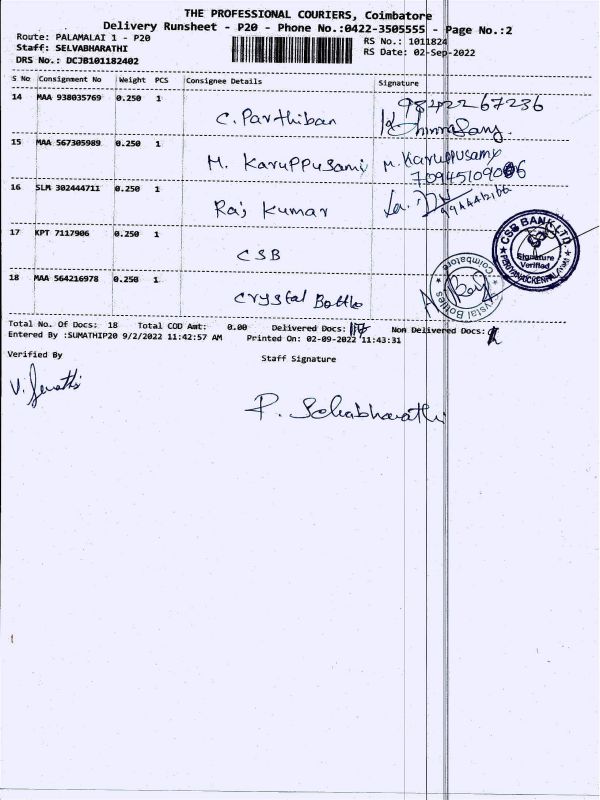 THE PROFESSIONAL COURIERS, Coimbatore
Delivery Runsheet - P20 - Phone No.:0422-3505555 - Page No.:2
Route: PALAMALAI 1 - P20 RS No.: 1011824
Staff: SELVABHARATHI RS Date: 02-Sep-2022
DRS No.: DCJB101182402
S No Consignment No Weight PCS Consignee Details Signature
14 MAA 938035769 0.250 1 C. Parthiban 9842267236
15 MAA 567305989 0.250 1 M. Karuppusami M. Karuppusamy
16 SLM 302444711 0.250 1 Raj Kumar
17 KPT 7117906 0.250 1 CSB
CSB BANK LTD
Signature
Verified
18 MAA 564216978 0.250 1 Crystal Bottle
Crystal Bottles
Coimbatore
Total No. Of Docs: 18 Total COD Amt: 0.00 Delivered Docs: Non Delivered Docs:
Entered By :SUMATHIP20 9/2/2022 11:42:57 AM Printed On: 02-09-2022 11:43:31
Verified By Staff Signature